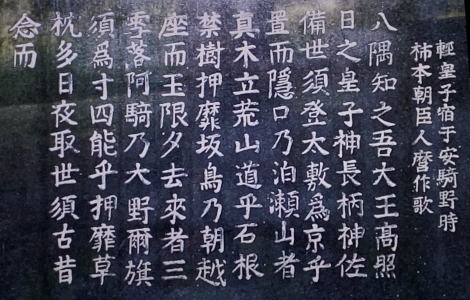 輕皇子宿于安騎野時
柿本朝臣人麿作歌
八隅知之吾大王高照
日之皇子神長柄神佐
備世須登太敷爲京乎
置而隱口乃泊瀬山者
真木立荒山道乎石根
禁樹押靡坂鳥乃朝越
座而玉限夕去來者三
雪落阿騎乃大野爾旗
須爲寸四能乎押靡草
枕多日夜取世須古昔
念而